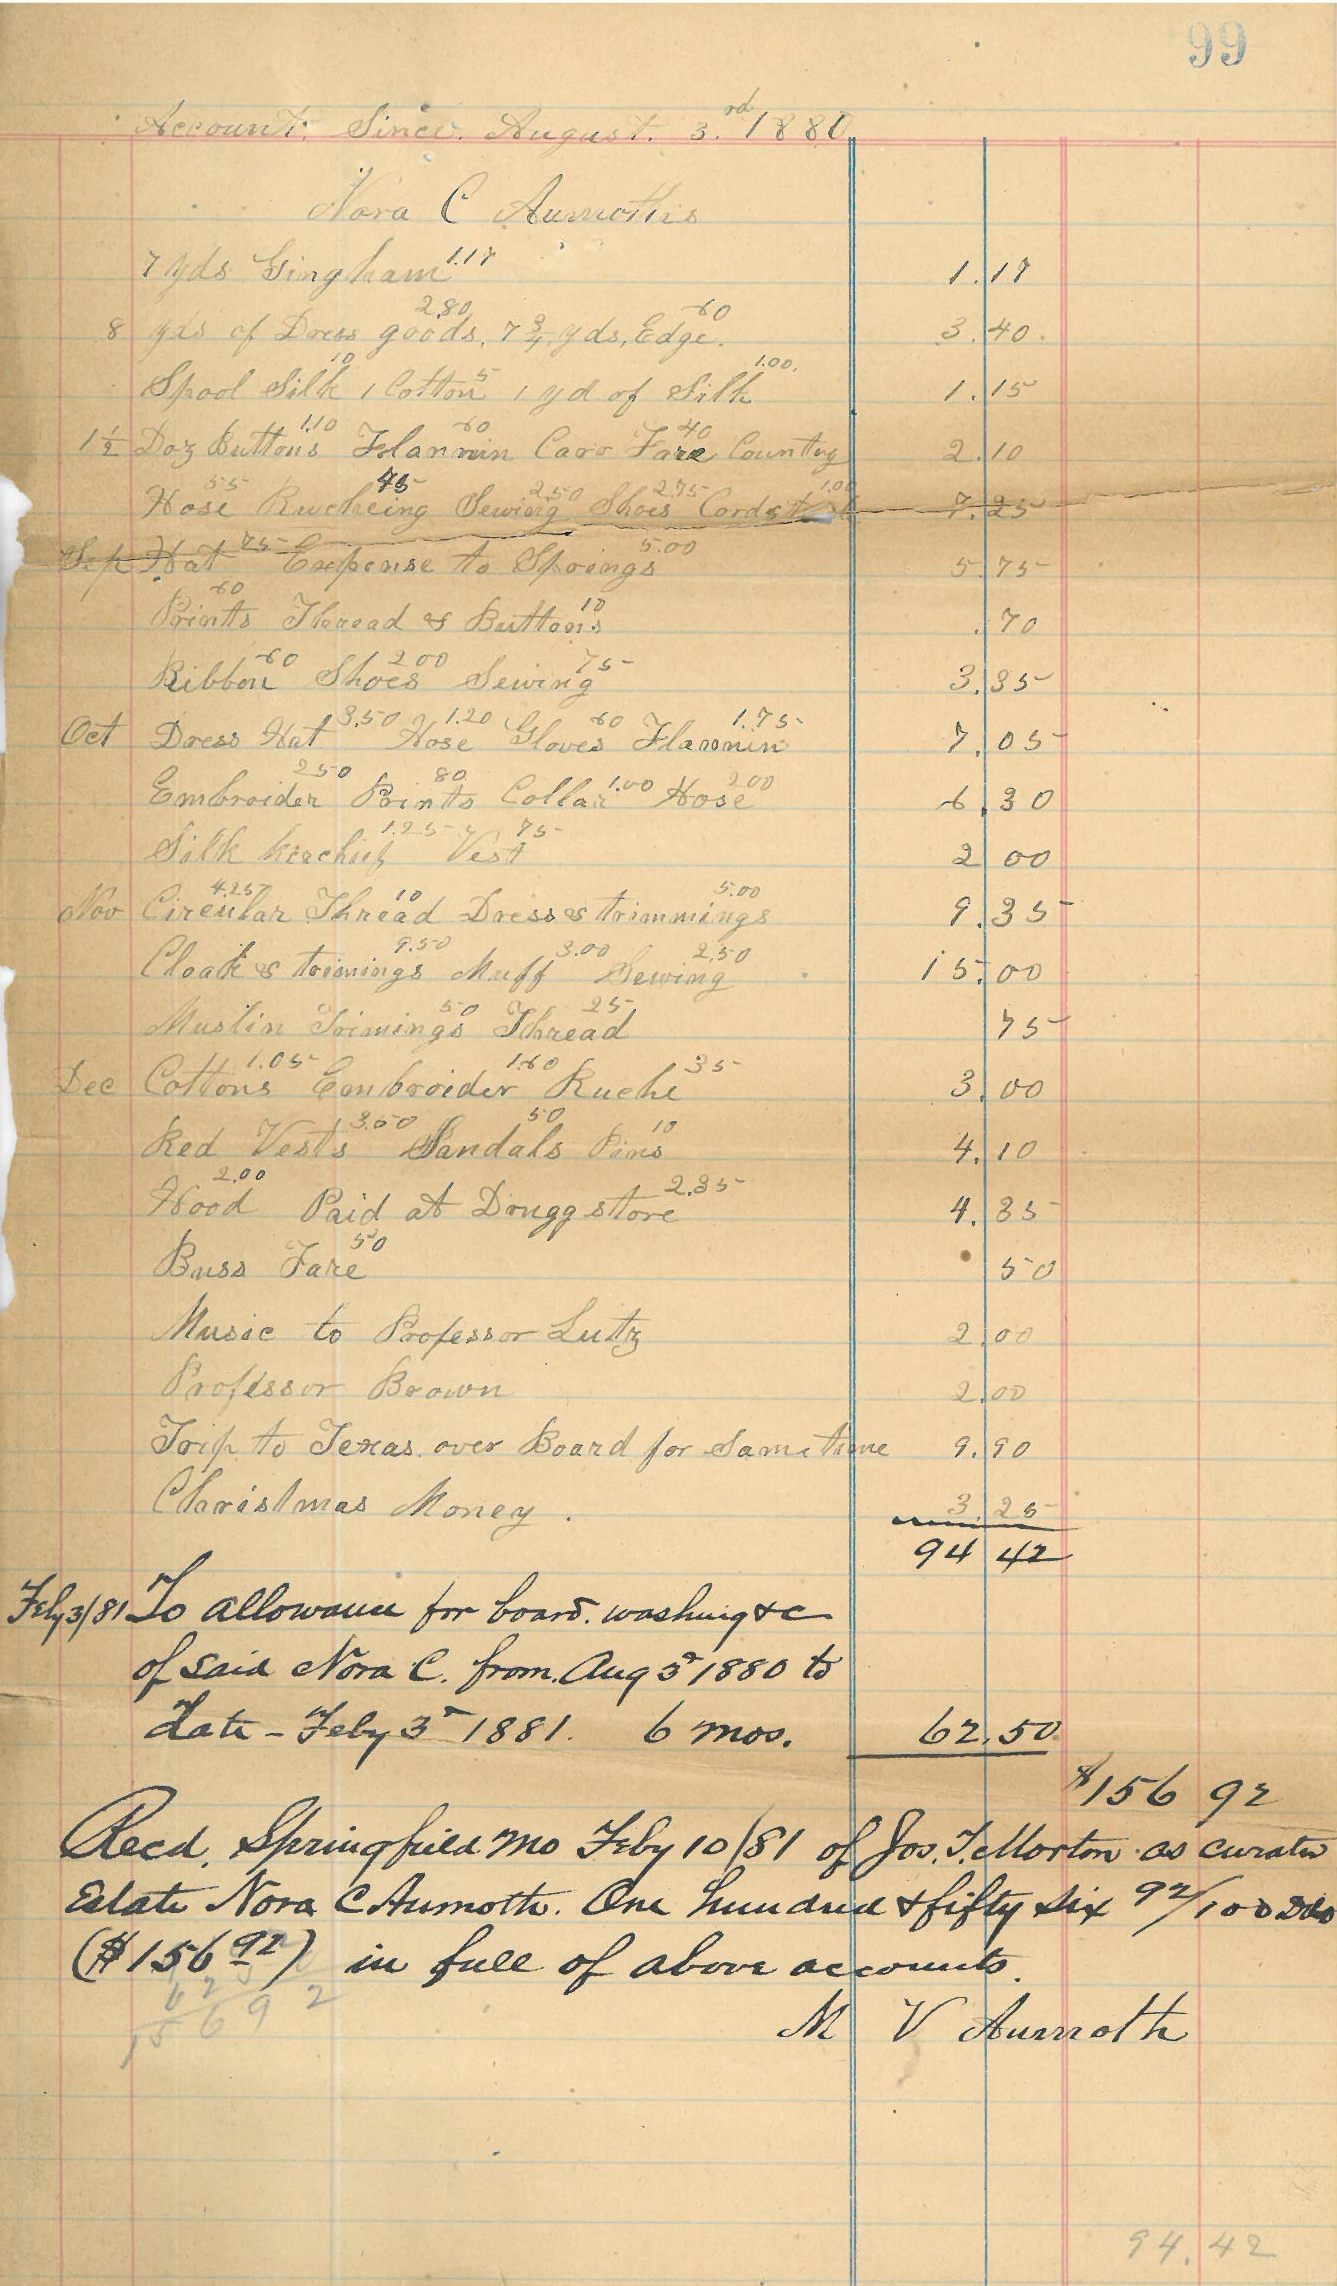 99
Account. Since. August. 3.rd 1880
Nora C Aumoths
7 yds Gingham 1.17 1.17
8 yds of Dress goods, 2.80 7 3/4 yds, Edge. 60 3.40.
Spool Silk 10 1 Cotton 5 1 yd of Silk 1.00. 1.15
1 1/2 Doz Buttons 1.10 Flannin 60 Carr Fare 40 Country 2.10
Hose 55 Rucheing 45 Sewing 2.50 Shoes 2.75 Cordset 1.00 7.25
Sep Hat 75 Expense to Springs 5.00 5.75
Prints 60 Thread & Buttons 10 .70
Ribbon 60 Shoes 2 00 Sewing 75 3.35
Oct Dress Hat 3.50 Hose 1.20 Gloves 60 Flannin 1.75 7.05
Embroider 2 50 Prints 80 Collar 1.00 Hose 2 00 6.30
Silk kerchief 1.25 Vest 75 2 00
Nov Circular 4.25 Thread 10 Dress & trimmings 5.00 9.35
Cloak & trimings 9.50 Muff 3.00 Sewing 2.50 15.00
Muslin Trimings 50 Thread 25 75
Dec Cottons 1.05 Embroider 1.60 Ruche 35 3.00
Red Vests 3.50 Sandals 50 Pins 10 4.10
Hood 2.00 Paid at Drugg store 2.35 4.35
Buss Fare 50 50
Music to Professor Lutz 2.00
Professor Brown 2.00
Trip to Texas over Board for Same time 9.90
Christmas Money. 3.25
94 42
Feby 3/81 To allowance for board. washing &c
of said Nora C. from. Aug 3d 1880 to
date - Feby 3d 1881. 6 mos. 62.50
$156 92
Recd. Springfield Mo Feby 10/81 of Jos. T. Morton as curator
Estate Nora C Aumoth. One hundred & fifty six 92/100
($156 92) in full of above accounts.
62 5
156 9 2
M V Aumoth
94.42